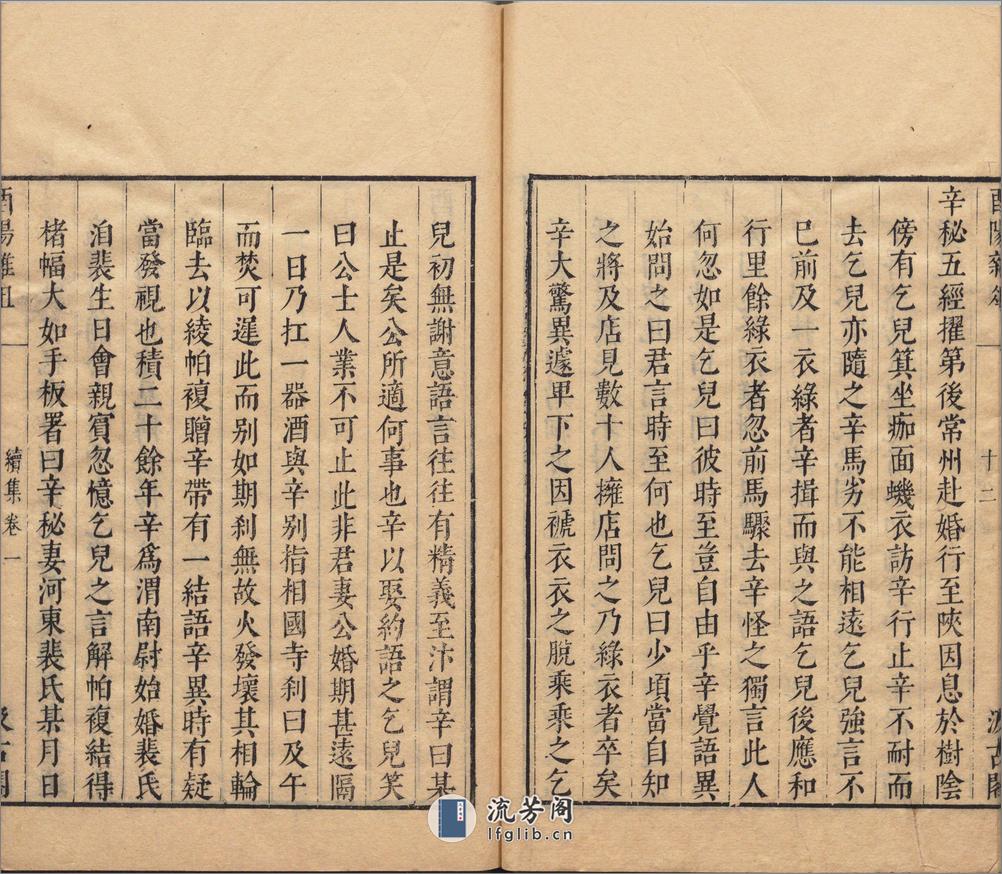 酉陽雜俎
十二
汲古閣
辛秘五經擢第後常州赴婚行至陝因息於樹陰
傍有乞兒箕坐痂面蟣衣訪辛行止辛不耐而
去乞兒亦隨之辛馬劣不能相遠乞兒強言不
已前及一衣綠者辛揖而與之語乞兒後應和
行里餘綠衣者忽前馬驟去辛怪之獨言此人
何忽如是乞兒曰彼時至豈自由乎辛覺語異
始問之曰君言時至何也乞兒曰少頃當自知
之將及店見數十人擁店問之乃綠衣者卒矣
辛大驚異遽卑下之因褫衣衣之脫乘乘之乞
兒初無謝意語言往往有精義至汴謂辛曰某
止是矣公所適何事也辛以娶約語之乞兒笑
曰公士人業不可止此非君妻公婚期甚遠隔
一日乃扛一器酒與辛別指相國寺刹曰及午
而焚可遲此而別如期刹無故火發壞其相輪
臨去以綾帕複贈辛帶有一結語辛異時有疑
當發視也積二十餘年辛爲渭南尉始婚裴氏
洎裴生日會親賓忽憶乞兒之言解帕複結得
楮幅大如手板署曰辛秘妻河東裴氏某月日
酉陽雜俎
續集卷一
汲古閣
流芳阁
lfglib.cn